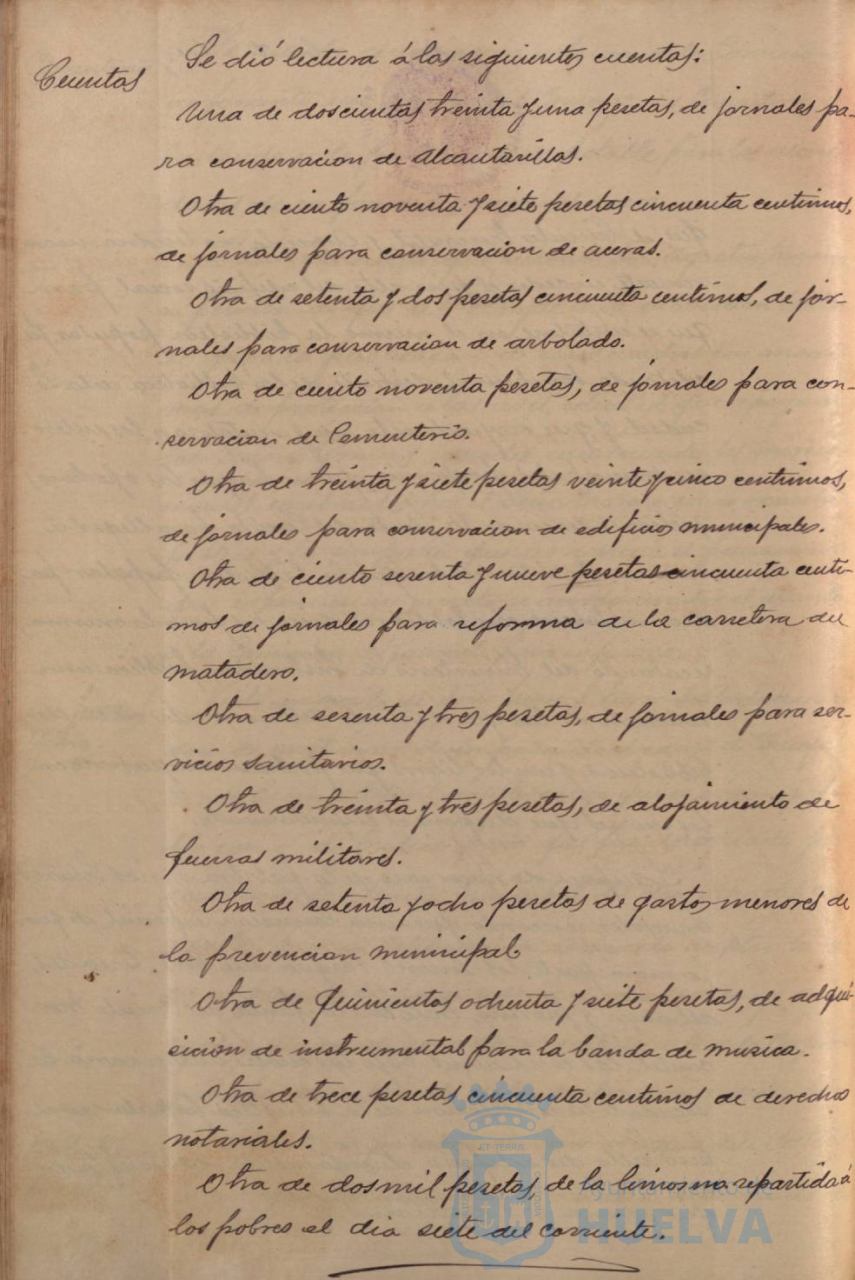 Cuentas
Se dió lectura á las siguientes cuentas:
Una de doscientas treinta y una pesetas, de jornales pa-
ra conservacion de Alcantarillas.
Otra de ciento noventa y siete pesetas cincuenta centimos,
de jornales para conservacion de aceras.
Otra de setenta y dos pesetas cincuenta centimos, de jor-
nales para conservacion de arbolado.
Otra de ciento noventa pesetas, de jornales para con-
servacion de Cementerio.
Otra de treinta y siete pesetas veinte y cinco centimos,
de jornales para conservacion de edificios municipales.
Otra de ciento sesenta y nueve pesetas cincuenta centi-
mos de jornales para reforma de la carretera del
matadero.
Otra de sesenta y tres pesetas, de jornales para ser-
vicios sanitarios.
Otra de treinta y tres pesetas, de alojamiento de
fuerzas militares.
Otra de setenta y ocho pesetas de gastos menores de
la prevencion municipal
Otra de Quinientas ochenta y siete pesetas, de adqui-
sicion de instrumental para la banda de musica.
Otra de trece pesetas cincuenta centimos de derechos
notariales.
Otra de dos mil pesetas, de la limosna repartida á
los pobres el dia siete del corriente.
Ayuntamiento de
HUELVA